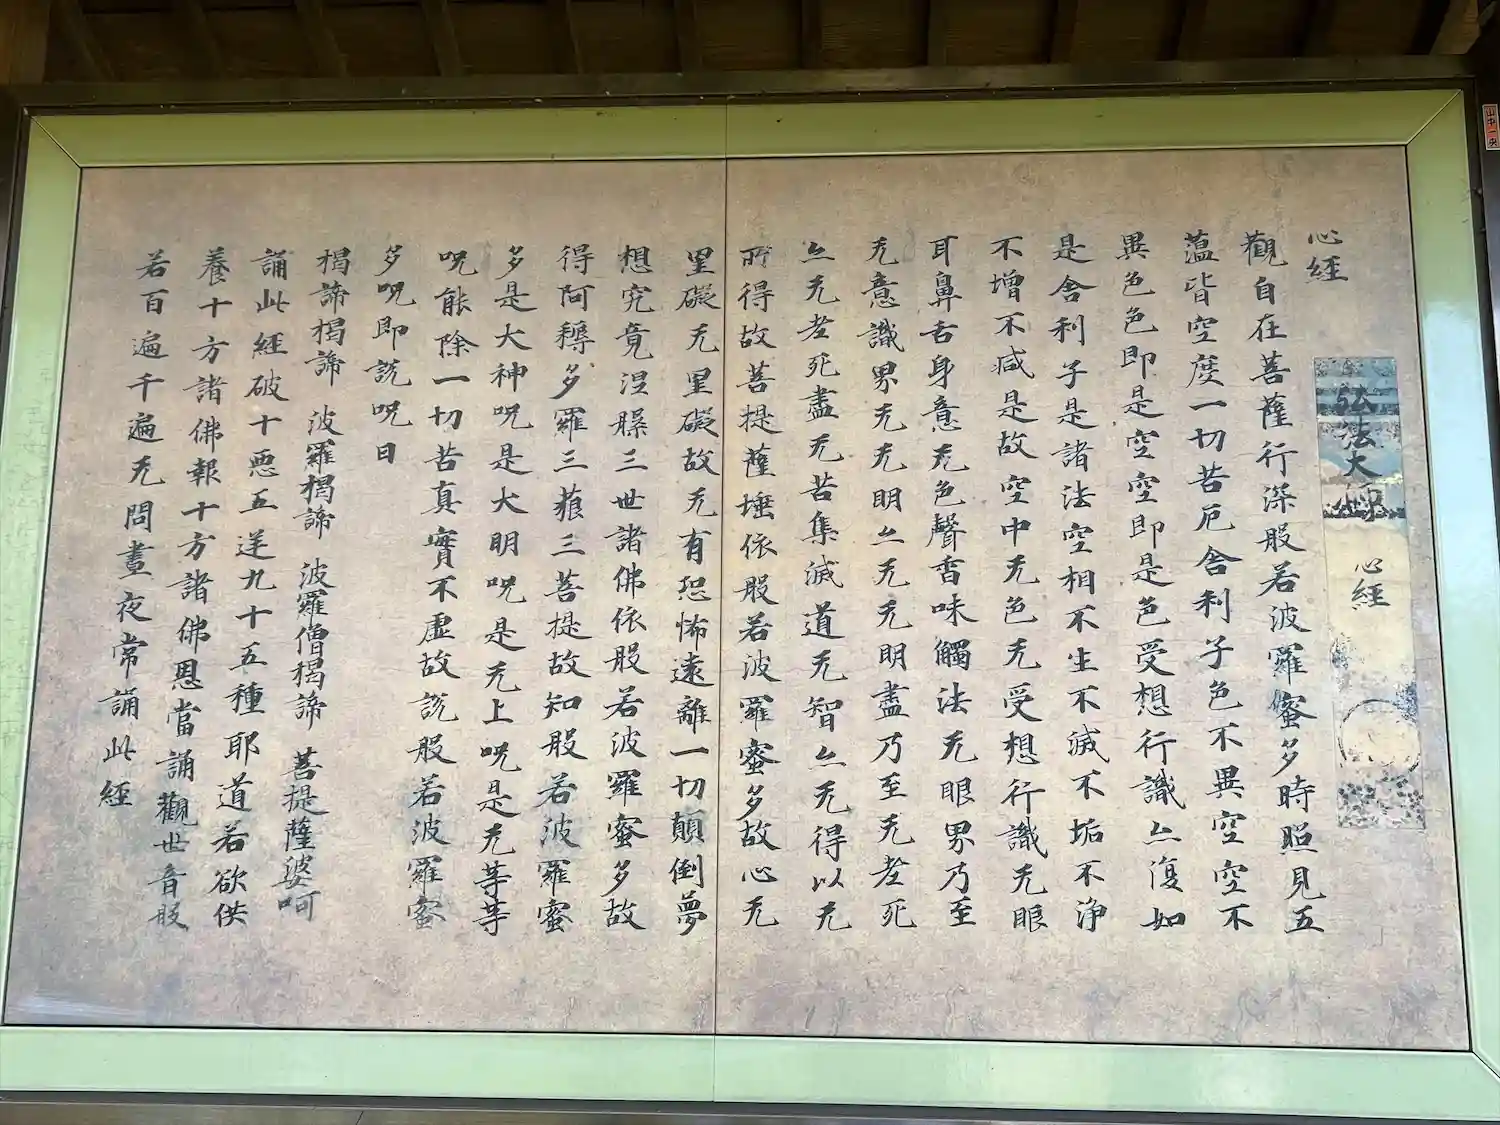 山中一央
弘法大師 心經
心經
觀自在菩薩行深般若波羅蜜多時照見五
蘊皆空度一切苦厄舎利子色不異空空不
異色色即是空空即是色受想行識亦復如
是舎利子是諸法空相不生不滅不垢不浄
不增不减是故空中无色无受想行識无眼
耳鼻舌身意无色聲香味觸法无眼界乃至
无意識界无无明亦无无明盡乃至无老死
亦无老死盡无苦集滅道无智亦无得以无
所得故菩提薩埵依般若波羅蜜多故心无
罣礙无罣礙故无有恐怖遠離一切顛倒夢
想究竟涅槃三世諸佛依般若波羅蜜多故
得阿耨多羅三藐三菩提故知般若波羅蜜
多是大神呪是大明呪是无上呪是无等等
呪能除一切苦真實不虛故說般若波羅蜜
多呪即說呪曰
揭諦揭諦 波羅揭諦 波羅僧揭諦 菩提薩婆呵
誦此經破十惡五逆九十五種耶道若欲供
養十方諸佛報十方諸佛恩當誦觀世音般
若百遍千遍无問晝夜常誦此經